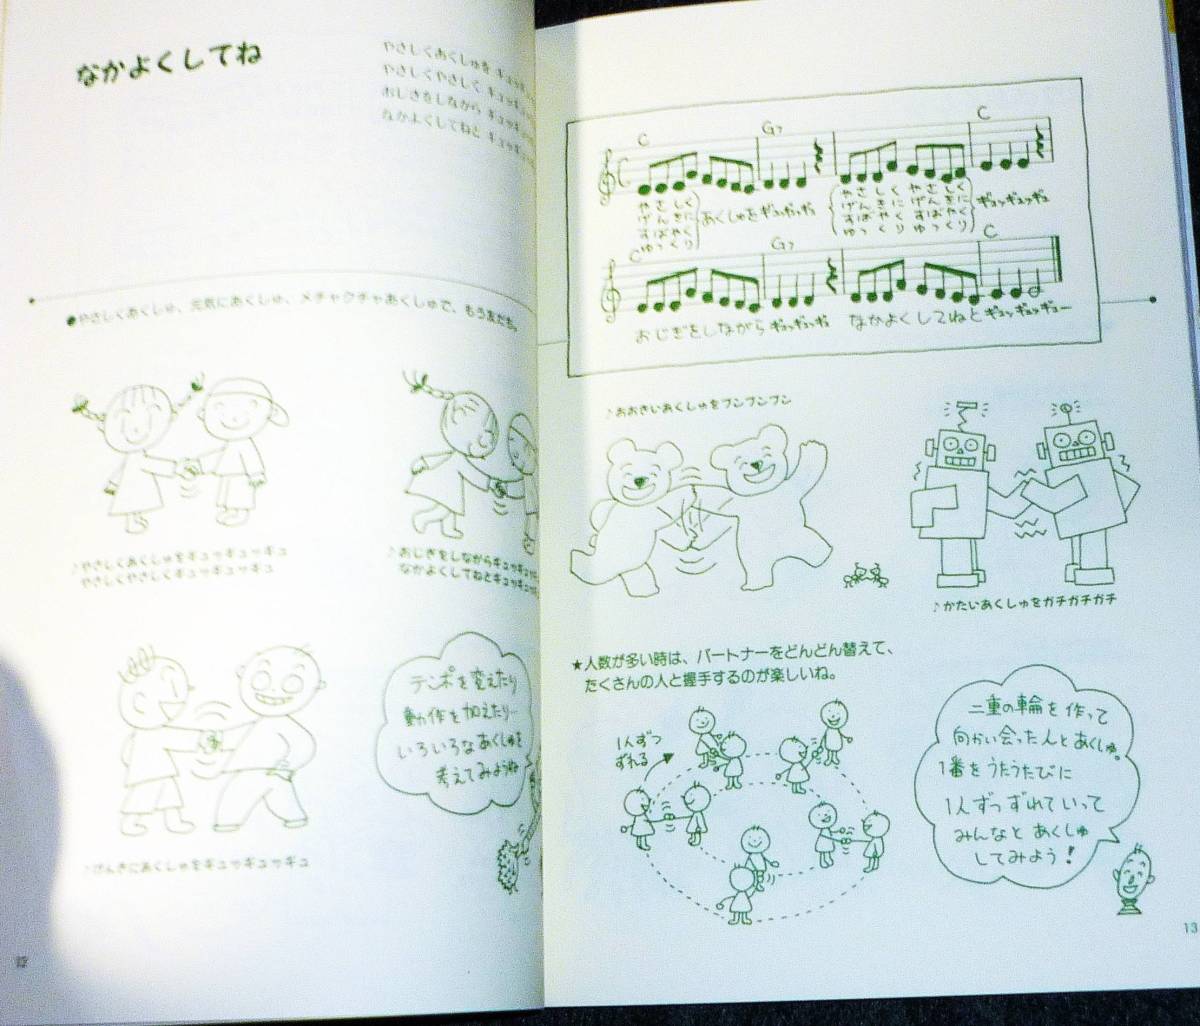 なかよくしてね
やさしくあくしゅを ギュッギュッ
やさしくやさしく ギュッギュッ
おじぎをしながら ギュッギュッ
なかよくしてねと ギュッギュッ
●やさしくあくしゅ、元気にあくしゅ、メチャクチャあくしゅで、もう友だち。
♪やさしくあくしゅをギュッギュッギュ
やさしくやさしくギュッギュッギュ
♪おじぎをしながらギュッギュッ
なかよくしてねとギュッギュッ
♪げんきにあくしゅをギュッギュッギュ
テンポを変えたり
動作を加えたり…
いろいろなあくしゅを
考えてみようね
C G7 C
やさしく
げんきに
すばやく
ゆっくり
あくしゅをギュッギュッギュ
やさしく やさしく
げんきに げんきに
すばやく すばやく
ゆっくり ゆっくり
ギュッギュッギュ
C G7 C
おじぎをしながら ギュッギュッギュ なかよくしてねと ギュッギュッギュー
♪おおきいあくしゅをブンブンブン
♪かたいあくしゅをガチガチガチ
★人数が多い時は、パートナーをどんどん替えて、
たくさんの人と握手するのが楽しいね。
1人ずつ
ずれる
二重の輪を作って
向かい会った人とあくしゅ。
1番をうたうたびに
1人ずつずれていって
みんなと あくしゅ
してみよう!
13